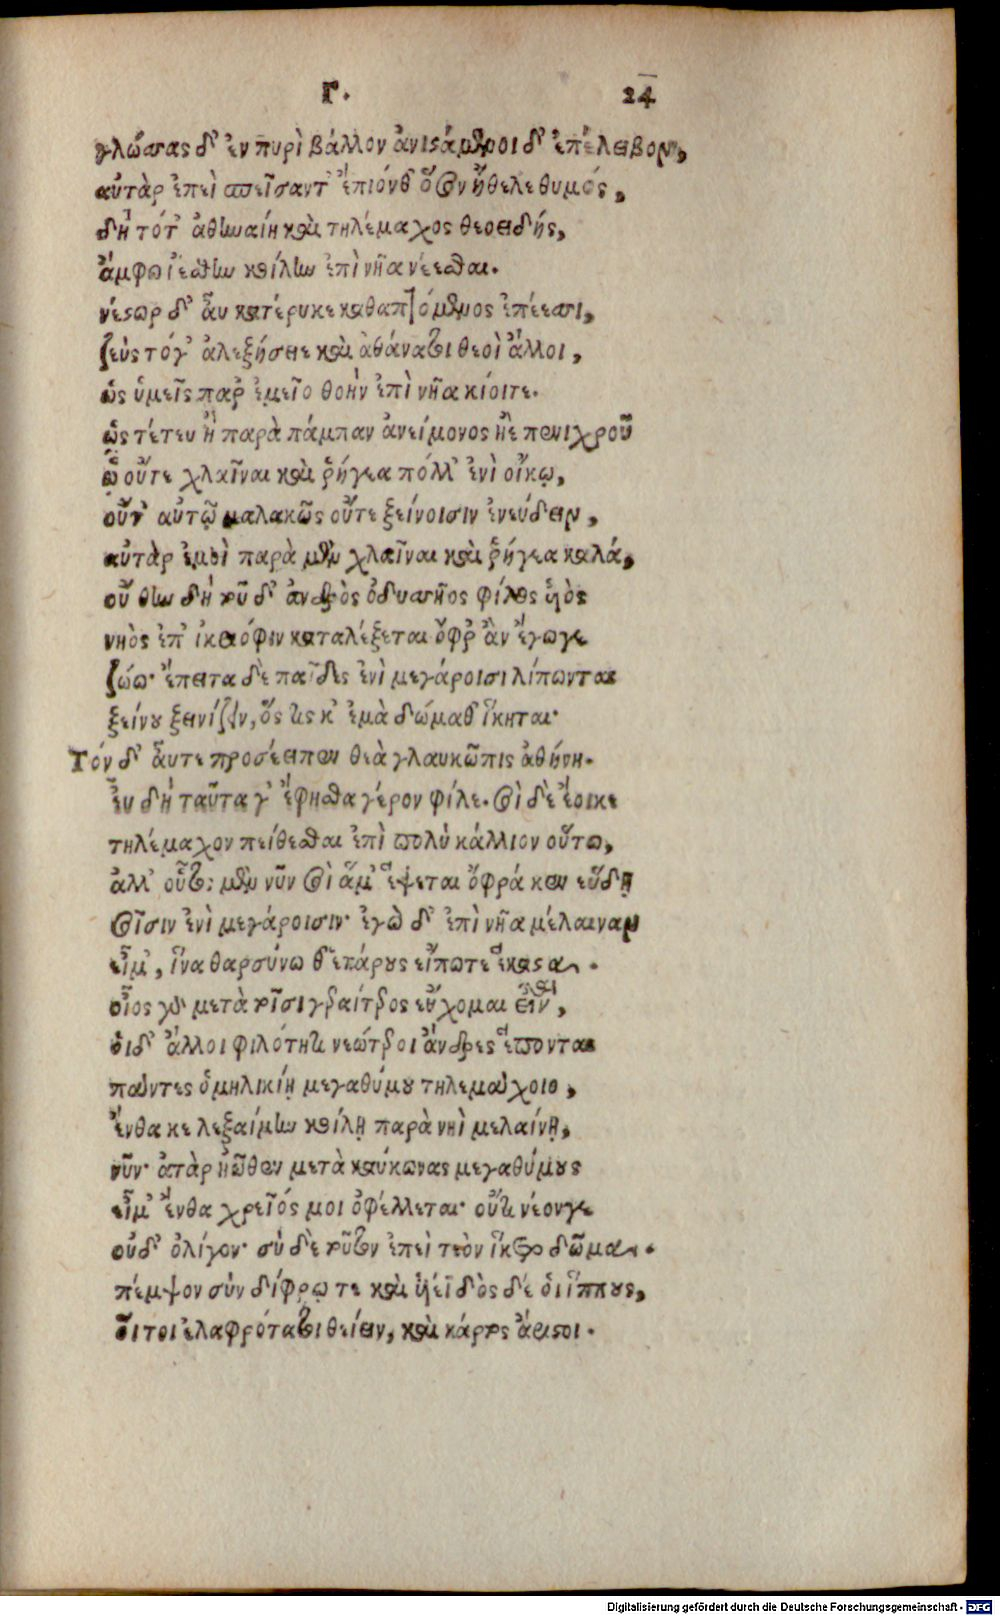 Γ. 24
γλώσσας δ' ἐν πυρὶ βάλλον ἀνιστάμενοι δ' ἐπέλειβον,
αὐτὰρ ἐπεὶ σπεῖσαντ' ἔπιόνθ' ὅσον ἤθελε θυμός,
δὴ τότ' ἀθηναίη καὶ τηλέμαχος θεοειδής,
ἄμφω ἱέσθην κοίλην ἐπὶ νῆα νέεσθαι.
νέστωρ δ' ἂυ κατέρυκε καθαπτόμενος ἐπέεσσι,
ζεὺς τόγ' ἀλεξήσειε καὶ ἀθάνατοι θεοὶ ἄλλοι,
ὡς ὑμεῖς παρ' ἐμεῖο θοὴν ἐπὶ νῆα κίοιτε.
ὥς τέτευ ἢ παρὰ πάμπαν ἀνείμονος ἠὲ πενιχροῦ
ᾧ οὔτε χλαῖναι καὶ ῥήγεα πόλλ' ἐνὶ οἴκῳ,
οὔτ' αὐτῷ μαλακῶς οὔτε ξείνοισιν ἐνεύδειν,
αὐτὰρ ἐμοὶ παρὰ μὲν χλαῖναι καὶ ῥήγεα καλά,
οὔ θην δὴ τοῦ δ' ἀνδρὸς ὀδυσσῆος φίλος ὑιὸς
νηὸς ἐπ' ἰκειόφιν καταλέξεται ὄφρ' ἂν ἔγωγε
ζώω· ἔπειτα δὲ παῖδες ἐνὶ μεγάροισι λίπωνται
ξείνους ξεινίζειν, ὅς τις κ' ἐμὰ δώμαθ' ἵκηται·
Τόν δ' ἆυτε προσέειπεν θεὰ γλαυκῶπις ἀθήνη.
ἒυ δὴ ταῦτα γ' ἔφησθα γέρον φίλε. σοὶ δὲ ἔοικε
τηλέμαχον πείθεσθαι ἐπὶ πολὺ κάλλιον οὕτω,
ἀλλ' οὗτος μὲν νῦν σοὶ ἅμ' ἕψεται ὄφρά κεν εὕδῃ
σοῖσιν ἐνὶ μεγάροισιν· ἐγὼ δ' ἐπὶ νῆα μέλαιναν
εἶμ', ἵνα θαρσύνω θ' ἑτάρους εἴπωτε ἕκαστα.
οἶος γὰρ μετὰ τοῖσι γεραίτερος εὔχομαι εἶναι,
ὁιδ' ἄλλοι φιλότητι νεώτεροι ἄνδρες ἕπονται
πάντες ὁμηλικίη μεγαθύμου τηλεμάχοιο,
ἔνθα κε λεξαίμην κοίλῃ παρὰ νηὶ μελαίνῃ,
νῦν· ἀτὰρ ἠῶθεν μετὰ καύκωνας μεγαθύμους
εἶμ' ἔνθα χρεῖός μοι ὀφέλλεται· οὔτι νέονγε
οὐδ' ὀλίγον· σὺ δὲ τοῦτον ἐπεὶ τεὸν ἵκετο δῶμα.
πέμψον σὺν δίφρῳ τε καὶ ὑιέϊ δὸς δέ ὁι ἵππους,
ὅι τοι ἐλαφρότατοι θείειν, καὶ κάρτος ἄριστοι.
Digitalisierung gefördert durch die Deutsche Forschungsgemeinschaft - DFG